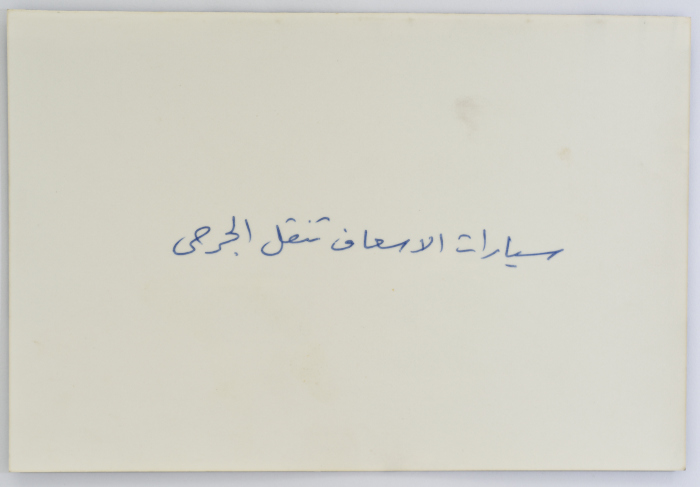 سيارات الاسعاف تنقل الجرحى